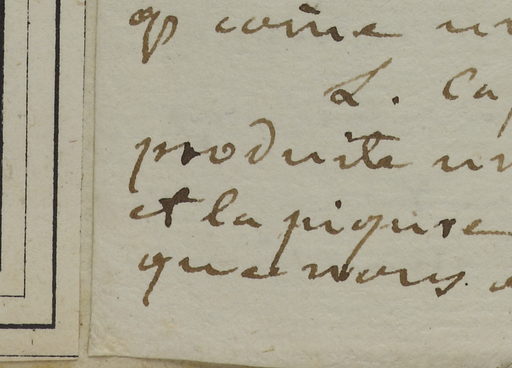 come un
L. Ca
produite un
et la piqure
que nous